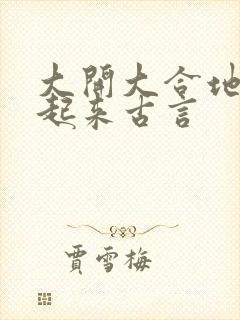 大開大合地
起来古言
賈雪梅